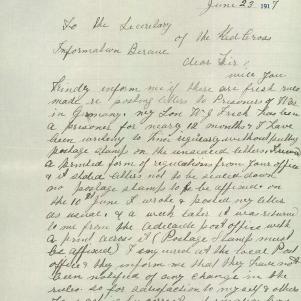 June 23 1917
To the Secretary
of the Red Cross
Information Bureau
Dear Sir,
will you
Kindly inform me if there are fresh rules
made re posting letters to Prisoners of War
in Germany. my Son W J has been
a prisoner for nearly 12 months & I have
been writing to him regularly without putting
postage stamp on the unsealed letters.
a printed form of regulations from your office
& it stated letters not to be sealed down
no postage stamps to be affixed. on
the 10th June I wrote & posted my letter
as usual, & a week later it was returned
to me from the Adelaide post office with
a print across it (Postage Stamps must
be affixed) I saw the local Post
office & they inform me that they have not
been notified of any change in the
rules. so for satisfaction to myself & others